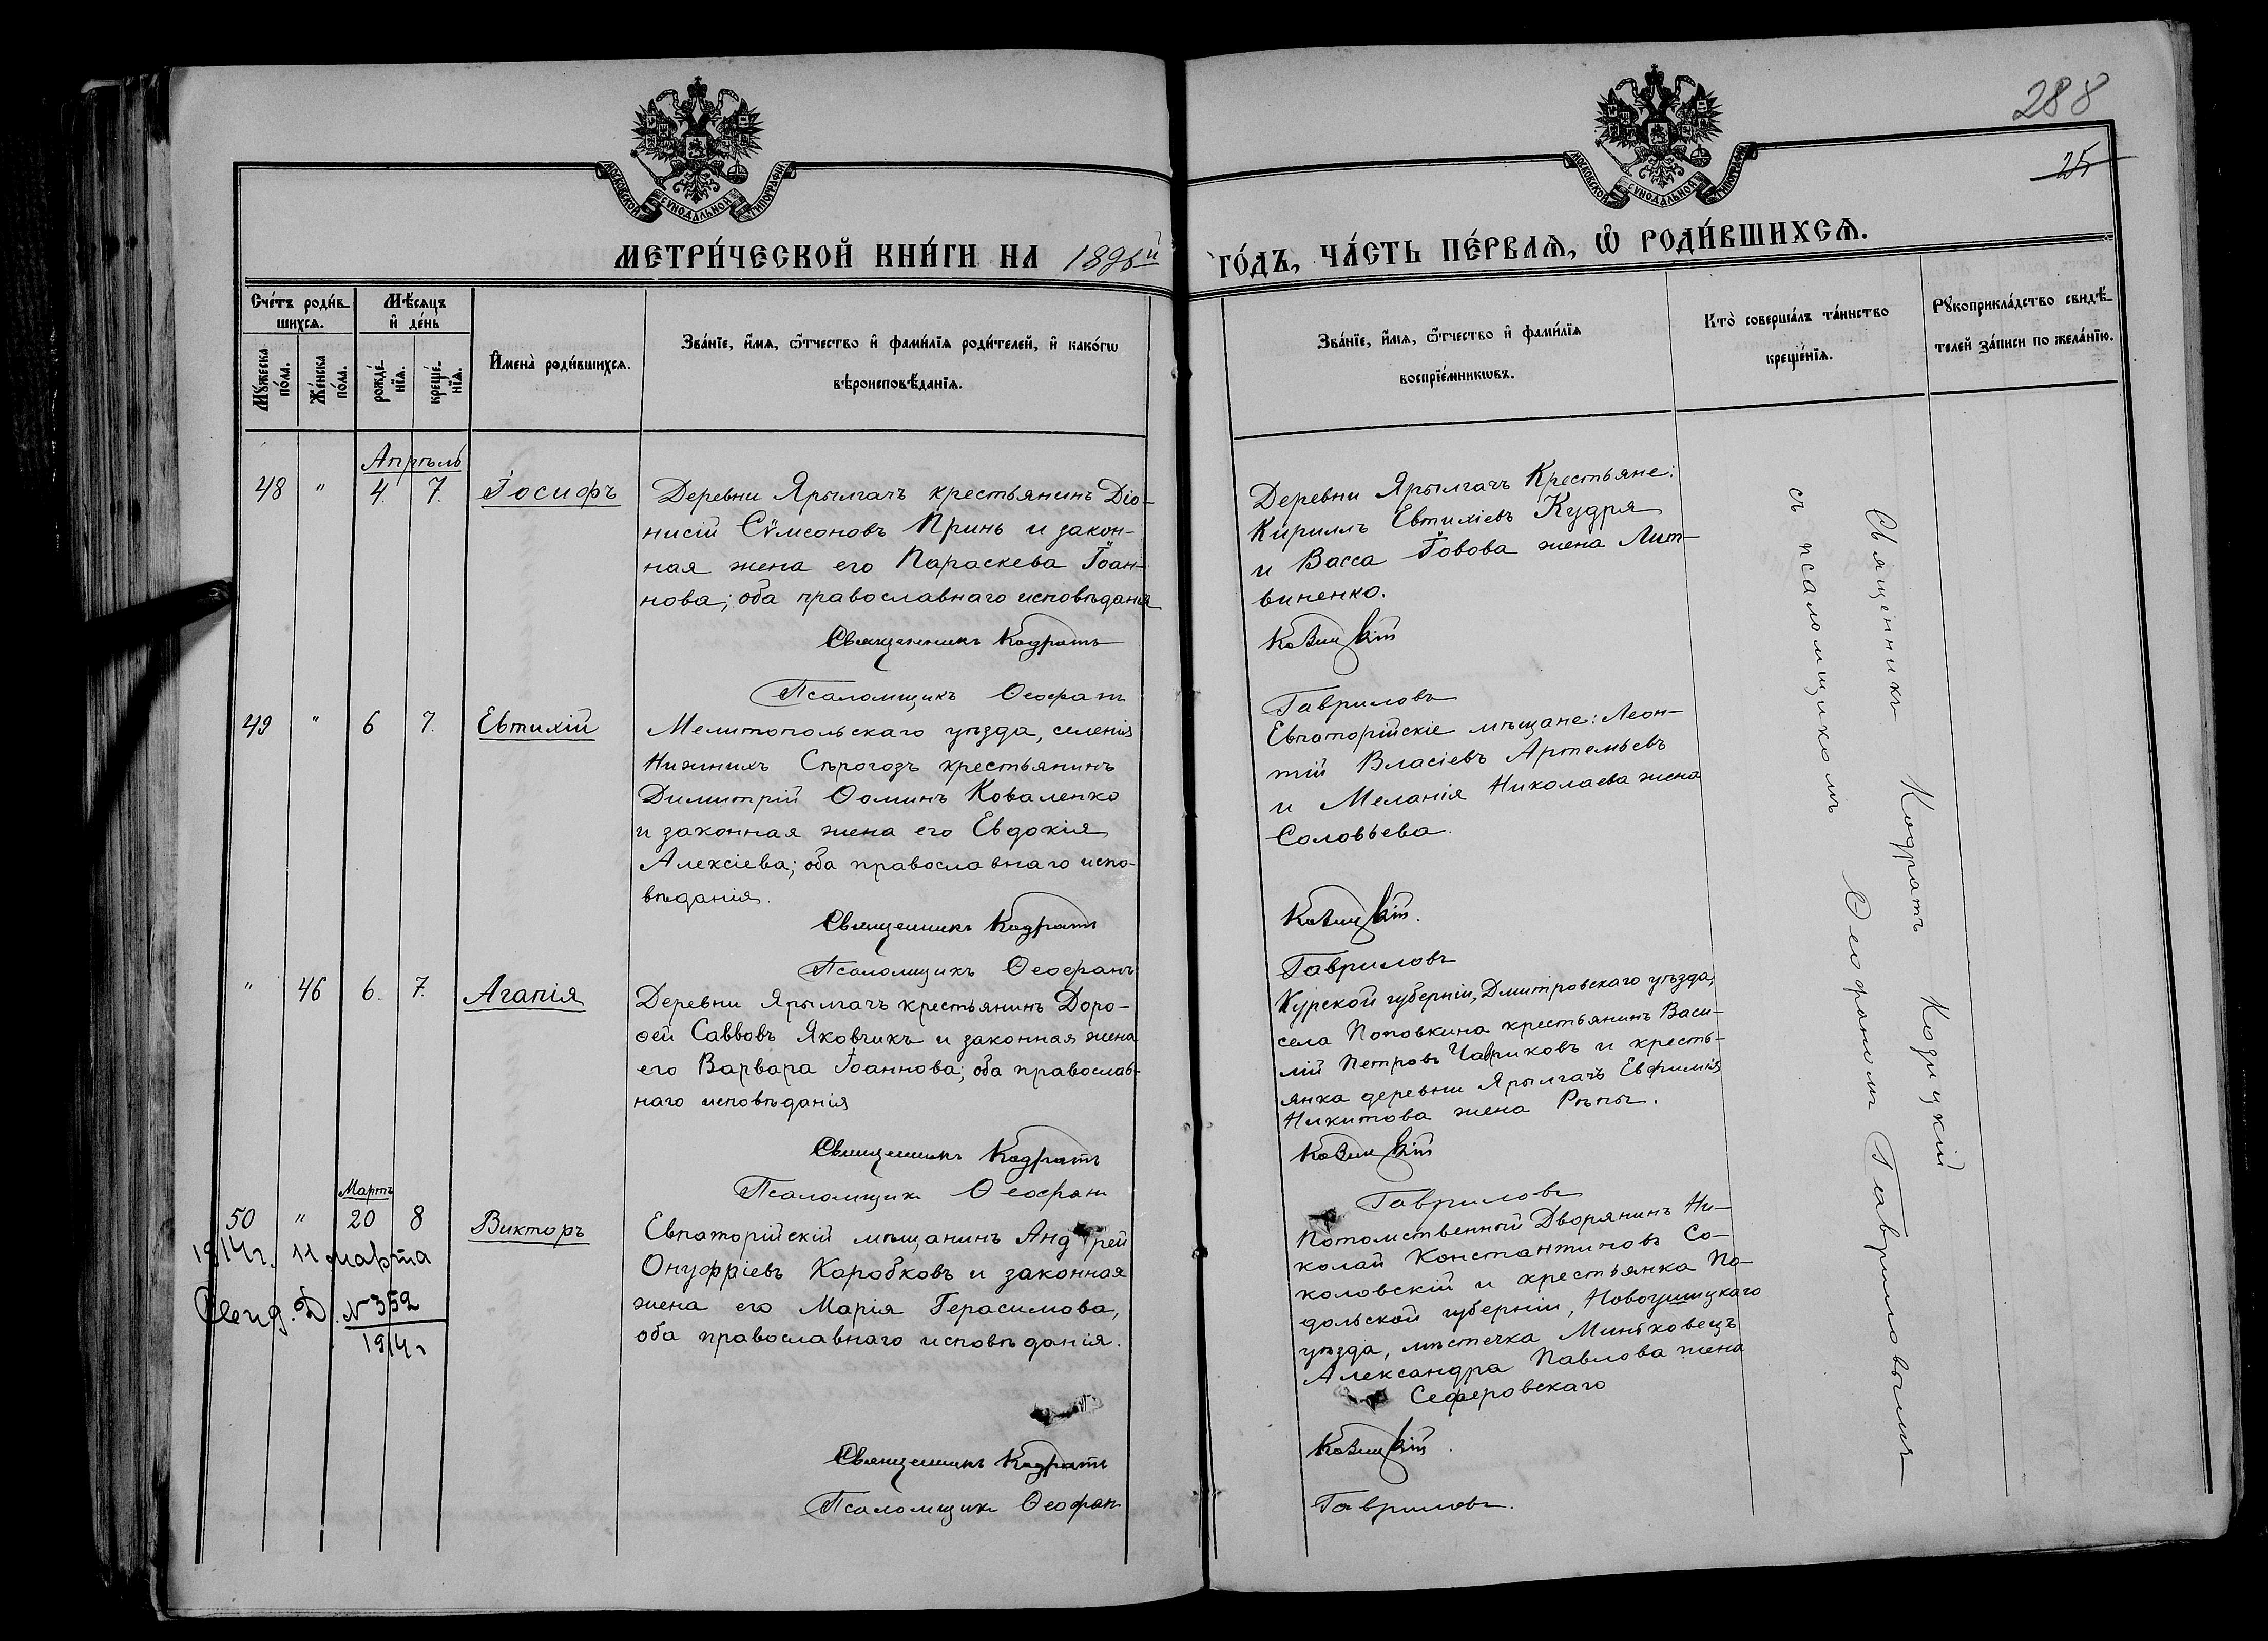 288
25
МОСКОВСКОЙ СѴНОДАЛЬНОЙ ТИПОГРАФІИ
МОСКОВСКОЙ СѴНОДАЛЬНОЙ ТИПОГРАФІИ
МЕТРИ́ЧЕСКОЙ КНИ́ГИ НА 1896й ГО́ДЪ, ЧА́СТЬ ПЕ́РВАѦ, Ѡ҆ РОДИ́ВШИХСѦ.
Сче́тъ роди́в-
шихсѧ.
Мꙋ́жеска
по́ла.
Же́нска
по́ла.
Мѣ́сѧцъ
и҆ де́нь
рожде́-
нїѧ.
креще́-
нїѧ.
И҆мена̀ роди́вшихсѧ.
Зва́нїе, и҆́мѧ, ѻ҆́тчество и҆ фами́лїѧ роди́телей, и҆ како́гѡ
вѣроисповѣ́данїѧ.
Зва́нїе, и҆́мѧ, ѻ҆́тчество и҆ фами́лїѧ
воспрїе́мникѡвъ.
Кто̀ соверша́лъ та́инство
креще́нїѧ.
Рꙋкоприкла́дство свидѣ́-
телей за́писи по жела́нїю.
Апрѣль
48 " 4. 7. Іосифъ
Деревни Ярылгачъ крестьянинъ Діо-
нисій Сѵмеоновъ Принь и закон-
ная жена его Параскева Іоан-
нова; оба православнаго исповѣданія
Священникъ Кодратъ
Псаломщикъ Ѳеофан
Деревни Ярылгачъ Крестьяне:
Кириллъ Евтихіевъ Кудря
и Васса Іовова жена Лит-
виненко.
Козицкій
Гавриловъ
49 " 6 7. Евтихій
Мелитопольскаго уѣзда, селенія
Нижнихъ Сѣрогозъ крестьянинъ
Димитрій Ѳоминъ Коваленко
и законная жена его Евдокія
Алексіева; оба православнаго испо-
вѣданія.
Священникъ Кодратъ
Псаломщикъ Ѳеофанъ
Евпаторійскіе мѣщане: Леон-
тій Власіевъ Артемьевъ
и Меланія Николаева жена
Соловьева.
Козицкій.
Гавриловъ
" 46 6. 7. Агапія
Деревни Ярылгачъ крестьянинъ Доро-
ѳей Саввовъ Яковчикъ и законная жена
его Варвара Іоаннова; оба православ-
наго исповѣданія
Священникъ Кодратъ
Псаломщик Ѳеофан
Курской губерніи, Дмитровскаго уѣзда,
села Поповкина крестьянинъ Васи-
лій Петровъ Чавриковъ и кресть-
янка деревни Ярылгачъ Евфимія
Никитова жена Рѣпы.
Козицкій
Гавриловъ
Мартъ
50 " 20 8 Викторъ
1914г. 11 марта
Свид. Д. №352
1914г
Евпаторійскій мѣщанинъ Андрей
Онуфріевъ Коробковъ и законная
жена его Марія Герасимова,
оба православнаго исповѣданія.
Священникъ Кодратъ
Псаломщик Ѳеофан
Потомственный Дворянинъ Ни-
колай Константиновъ Со-
коловскій и крестьянка По-
дольской губерніи, Новоушицкаго
уѣзда, мѣстечка Миньковецъ
Александра Павлова жена
Сеферовскаго
Козицкій.
Гавриловъ.
Священникъ Кодратъ Козицкій
съ псаломщикомъ Ѳеофаномъ Гавриловымъ